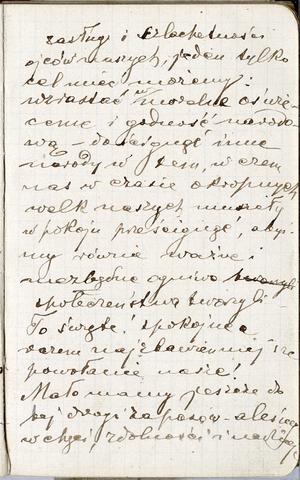 zasługi i szlachetności
ojców naszych, jeden tylko
cel mieć możemy:
wzrastać w moralne oświe-
cenie i godność narodo-
wą - doścignąć inne
narody w tem, w czem
nas w czasie okropnych
walk naszych musiały
w pokoju prześcignąć, abyś-
my równie ważne i
niezbędne ogniwo
społeczeństwa tworzyli.
To święte! spokojne a
zarazem najzbawienniejsze
powołanie nasze!
Mało mamy jeszcze do
tej drogi zapasów - ale
w chęci, zdolności i